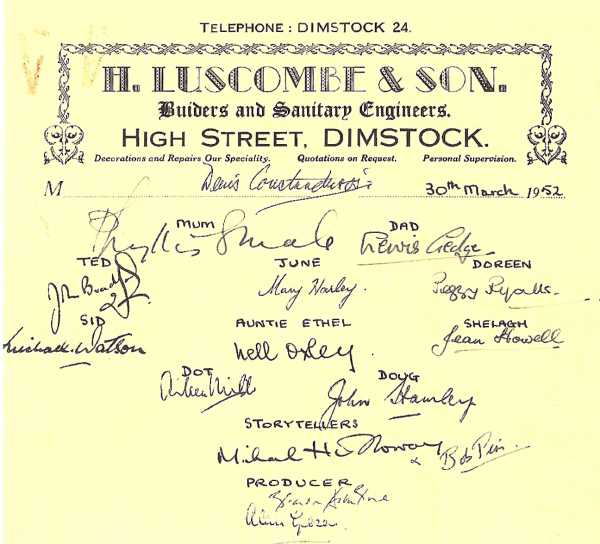 TELEPHONE : DIMSTOCK 24.
H. LUSCOMBE & SON.
Buiders and Sanitary Engineers.
HIGH STREET, DIMSTOCK.
Decorations and Repairs Our Speciality. Quotations on Request. Personal Supervision.
M Denis Constanduros. 30th March 1952
MUM DAD
Phyllis Smale Lewis Gedge
TED JUNE DOREEN
Mary Harley. Peggy Ryalls.
SID AUNTIE ETHEL SHELAGH
Michael Watson Nell Oxley. Jean Howell
DOT DOUG
John Stanley
STORYTELLERS
Michael Holloway & Bob Pim.
PRODUCER